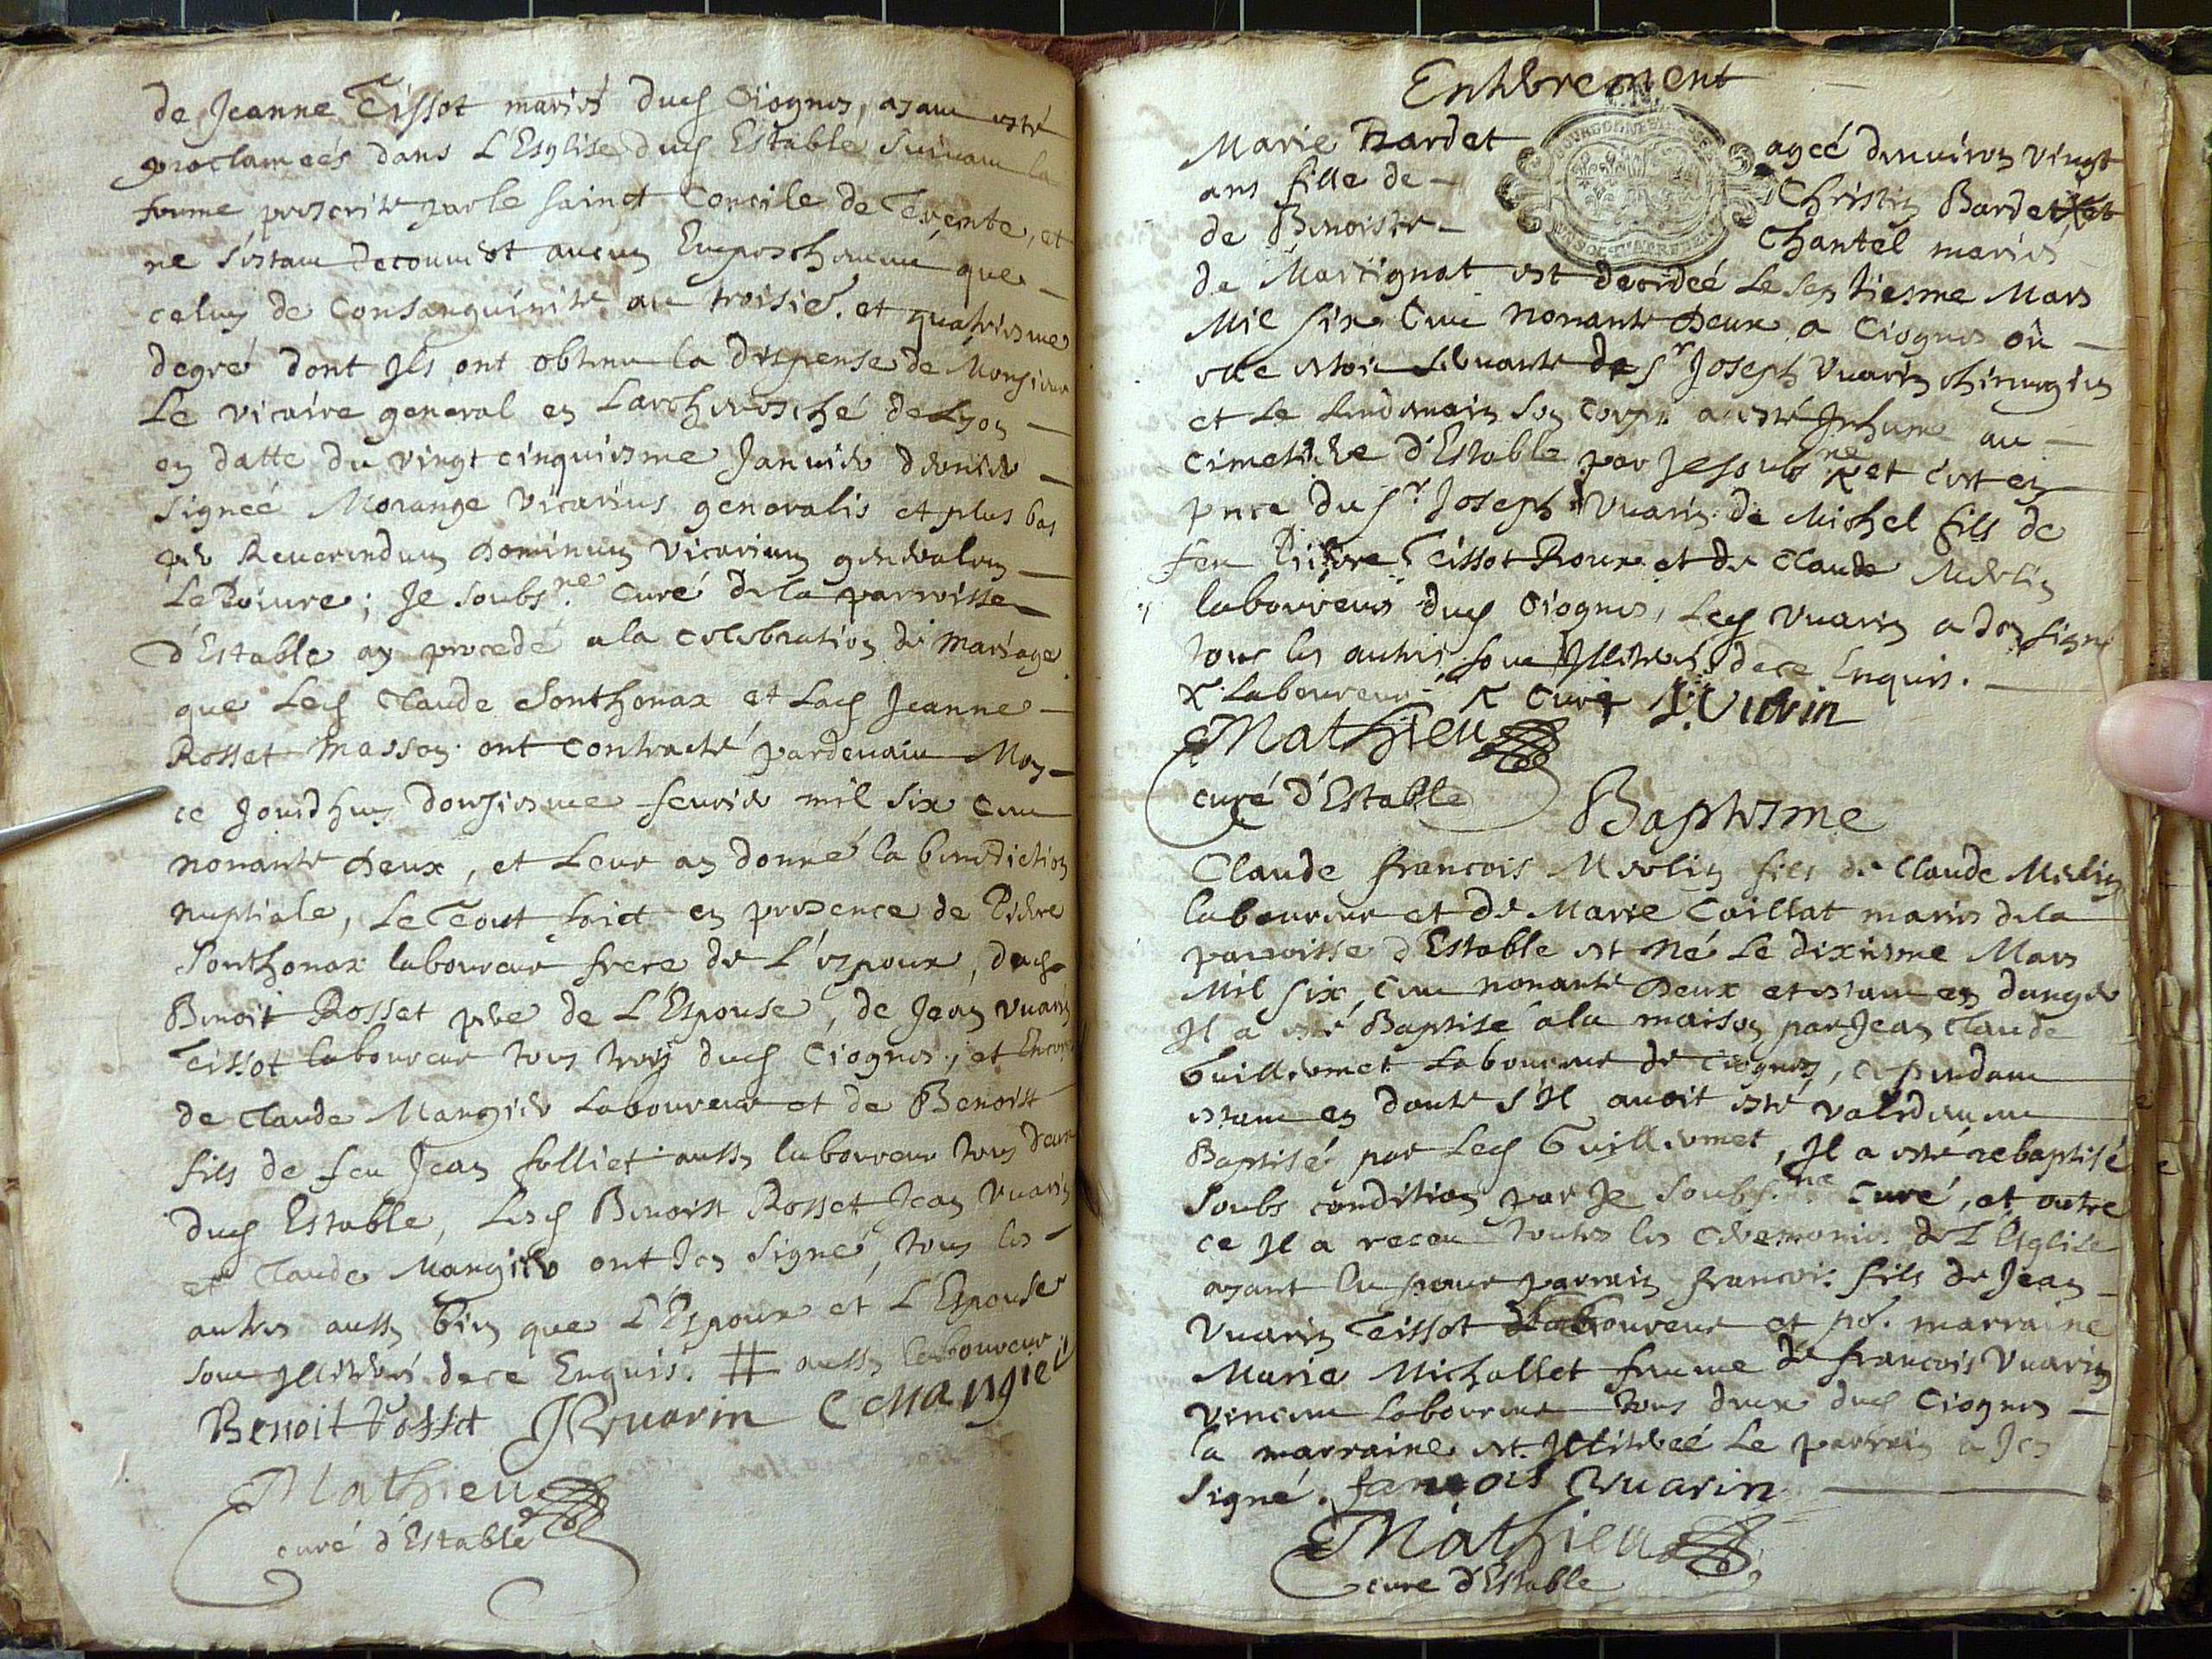 de Jeanne Tissot mariés dud Ciognes, ayant esté
proclameés dans L'Esglise dud Estable Suivant la
forme prescrite par le sainct Concile de Trente, et
ne s'estant decouvert aucun Empeschement que
celuy de Consanguinité au troisie. et quatriesme
degré dont Ils ont obtenu la dispense de Monsieur
Le vicaire general en L'archevesché de Lyon
en datte du vingt cinquiesme Janvier dernier
signeé Morange vicarius generalis et plus bas
per Reverendum Dominum Vicarium generalem
Le Poivre; Je soubsne. Curé de la parroisse
d'Estable ay procedé a la celebration du Mariage
que Led Claude Sonthonax et Lad Jeanne
Rosset Masson ont Contracté pardevant Moy
ce Jourdhuy douziesme fevrier mil six cent
nonante Deux, et Leur ay donné la benediction
Nuptiale, Le Tout faict en presence de Pierre
Sonthonax laboureur frere de L'espoux, dud
Benoit Rosset pere de L'Espouse, de Jean Vuarin
Tissot laboureur tous trois dud Ciognes, et Encor
de Claude Mangier Laboureur et de Benoist
fils de feu Jean folliet aussy laboureur tous deux
dud Estable, Lesd Benoist Rosset Jean Vuarin
et Claude Mangier ont Icy signé, tous les
autres aussy bien que L'Espoux et L'Espouse
sont Illiterés de ce Enquis. # aussy laboureur
Benoit Rosset J Vuarin C Mangier
Mathieu
curé d'Estable
Enterrement
Marie Bardet ageé denviron vingt
ans fille de Christin Bardet X et
de Benoiste Chantel mariés
de Martignat est decedeé Le Septiesme Mars
Mil Six Cent Nonante Deux a Ciognes où
elle estoit servante de Sr Joseph Vuarin chirurgien
et Le Lendemain son corps a esté Inhume au
Cimetiere d'Estable par Je soubsne X et c'est en
pnce du Sr Joseph Vuarin de Michel fils de
feu Pierre Tissot Roux et de Claude Merlin
laboureurs dud Ciognes, Led Vuarin a Icy signé
tous les autres sont Illiterés de ce Enquis.
X Laboureur X Curé J. Vuarin
Mathieu
curé d'Estable
Baptesme
Claude francois Merlin fils de Claude Merlin
laboureur et de Marie Caillat mariés de la
parroisse d'Estable est Né Le dixiesme Mars
Mil Six Cent nonante Deux et estant en danger
Il a esté Baptisé a la maison par Jean Claude
Guillermet Laboureur de Ciognes, cependant
estant en doute s'Il avoit esté validement
Baptisé par Led Guillermet, Il a esté rebaptisé
Soubs condition par Je Soubsne Curé, et outre
ce Il a receu toutes les Ceremonies de L'Esglise
ayant Eu pour parrain francois fils de Jean
Vuarin Teissot laboureur et pr. marraine
Marie Michallet femme de francois Vuarin
Vincent Laboureur tous deux dud Ciognes
la marraine est Illitereé Le parrain a Icy
signé. françois Vuarin
Mathieu
cure d'Estable